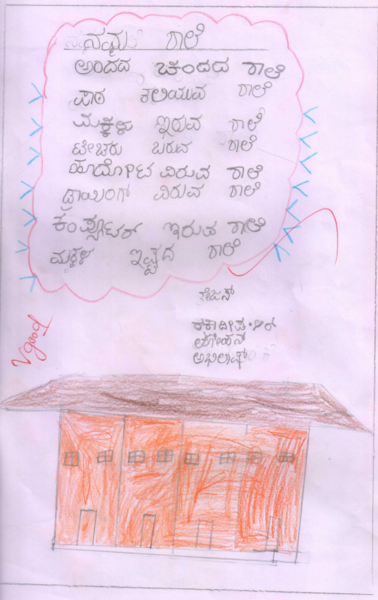 ನಮ್ಮ ಶಾಲೆ
ಅಂದದ ಚಂದದ ಶಾಲೆ
ಪಾಠ ಕಲಿಯುವ ಶಾಲೆ
ಮಕ್ಕಳು ಇರುವ ಶಾಲೆ
ಟೀಚರು ಬರುವ ಶಾಲೆ
ಹೂದೋಟ ವಿರುವ ಶಾಲೆ
ಡ್ರಾಯಿಂಗ್ ವಿರುವ ಶಾಲೆ
ಕಂಪ್ಯೂಟರ್ ಇರುವ ಶಾಲೆ
ಮಕ್ಕಳ ಇಷ್ಟದ ಶಾಲೆ
V good
ಮೋಹನ್
ಅಭಿಲಾಷ್